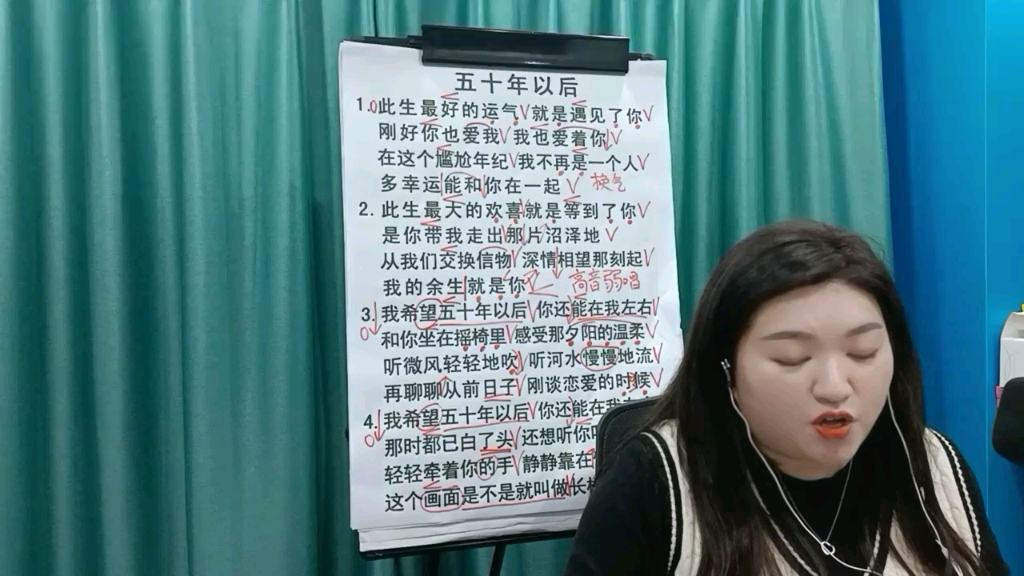 五十年以后
1.此生最好的运气∨就是遇见了你∨
刚好你也爱我∨我也爱着你∨
在这个尴尬年纪∨我不再是一个人∨
多幸运能和你在一起∨ 换气
2.此生最大的欢喜就是等到了你∨
是你带我走出那片沼泽地∨
从我们交换信物∨深情相望那刻起∨
我的余生就是你 高音弱唱
3.我希望五十年以后∨你还能在我左右∨
和你坐在摇椅里∨感受那夕阳的温柔∨
听微风轻轻地吹∨听河水慢慢地流∨
再聊聊从前日子∨刚谈恋爱的时候∨
4.我希望五十年以后∨你还能在我
那时都已白了头∨还想听你
轻轻牵着你的手∨静静靠在
这个画面是不是就叫做长